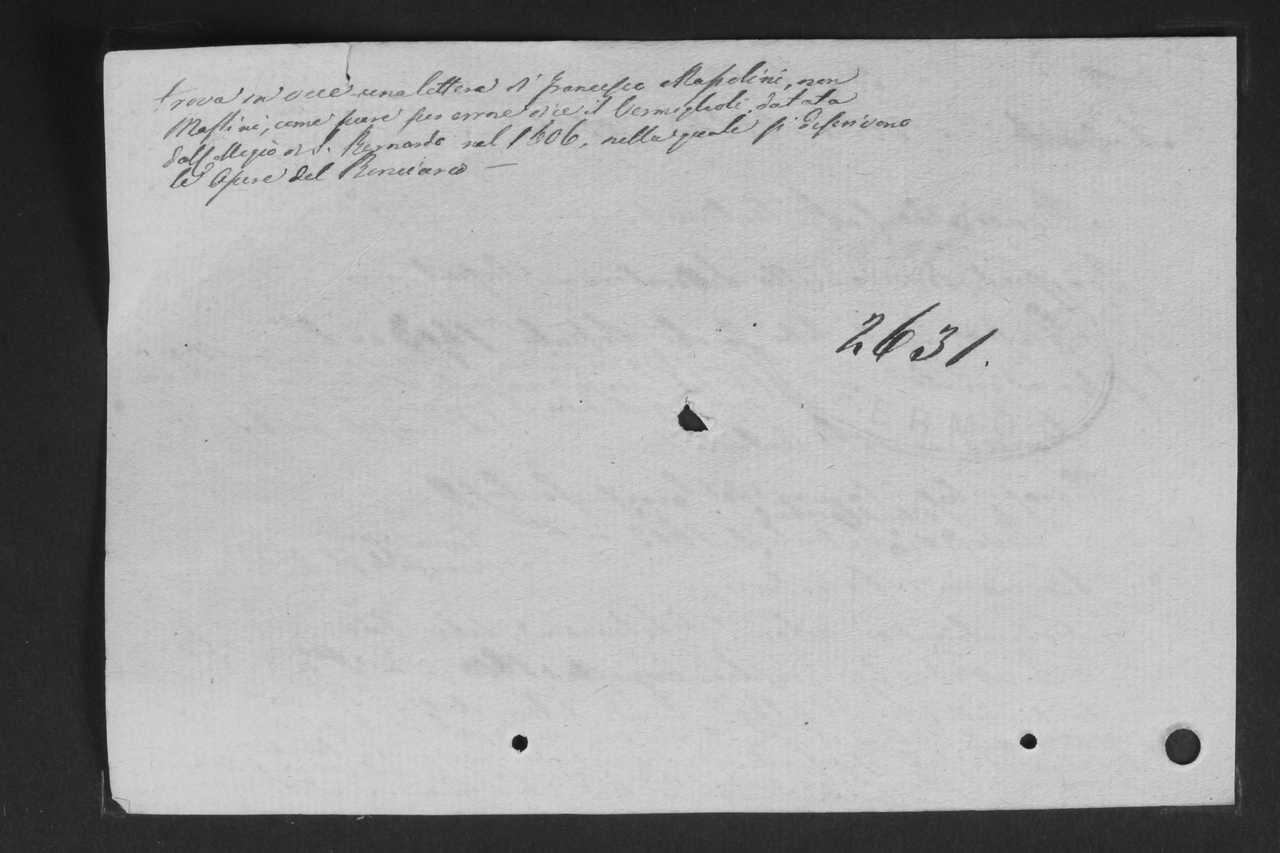 trova in vece una lettera di Francesco Massolini, non
Mastini, come pure per errore dice il Vermiglioli, datata
di S. Bernardo nel 1606, nella quale si descrivono
le Opere del Ronciano —
2631.